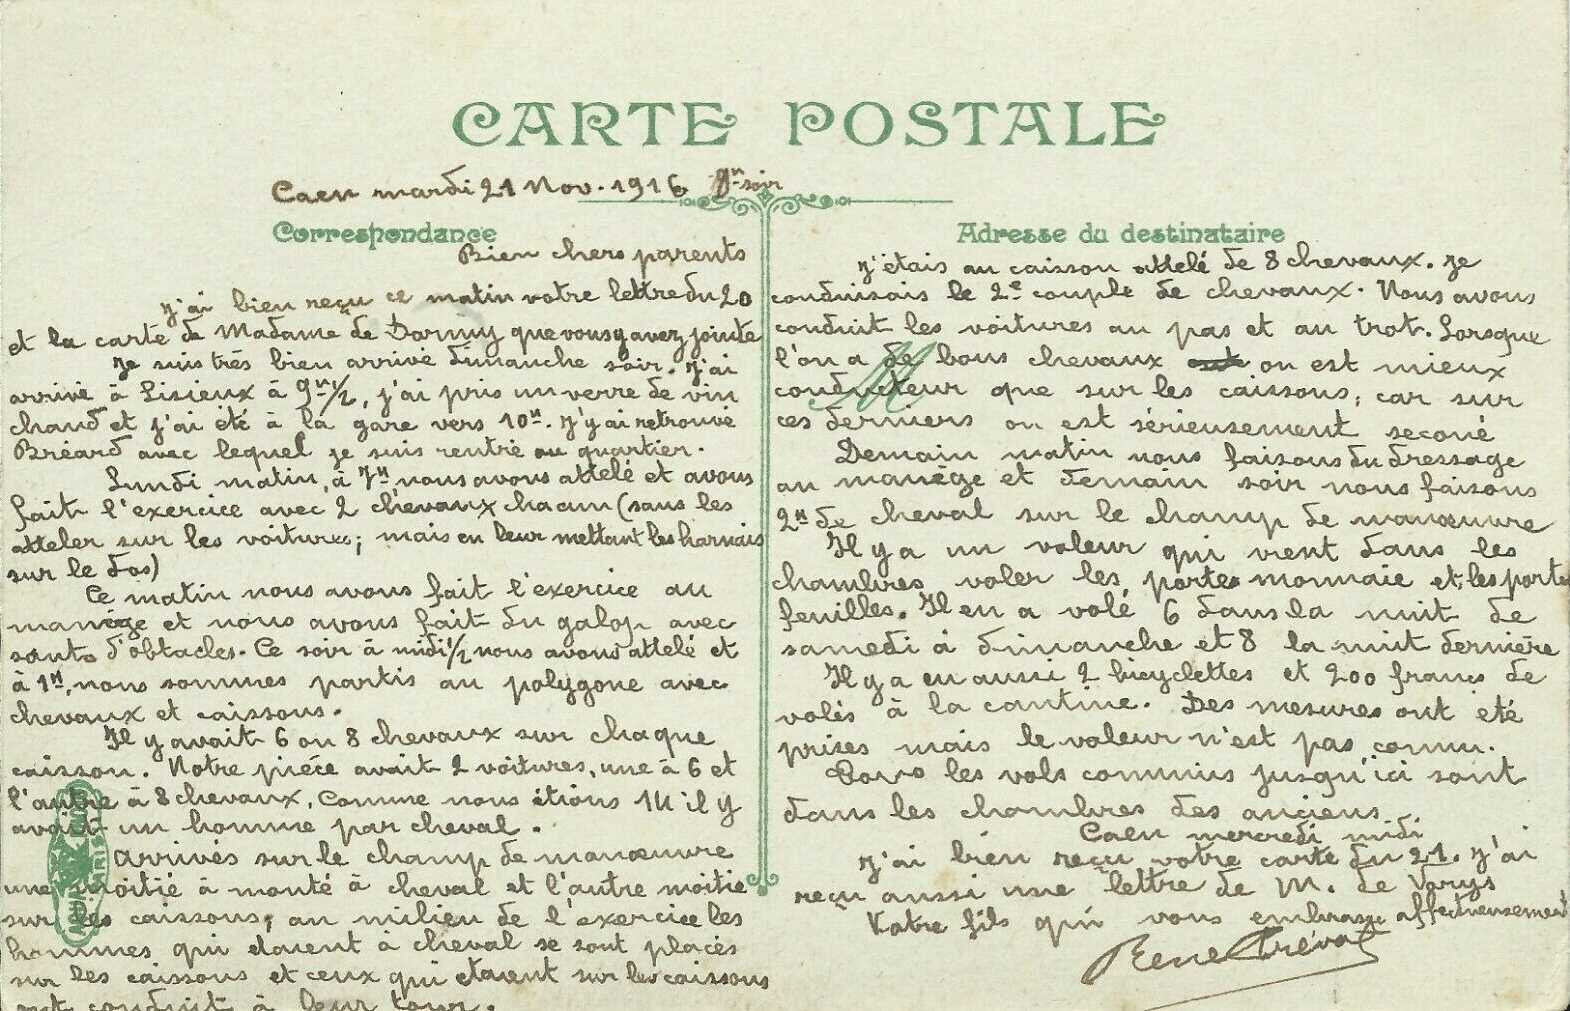 CARTE POSTALE
Caen mardi 21 Nov. 1916 soir
Correspondance
Bien chers parents
J'ai bien reçu ce matin votre lettre du 20
et la carte de Madame de Dormy que vous y avez jointe
Je suis très bien arrivé dimanche soir. J'ai
arrivé à Lisieux à 9h 1/2, j'ai pris un verre de vin
chaud et j'ai été à la gare vers 10h. J'y ai retrouvé
Bréard avec lequel je suis rentré au quartier.
Lundi matin, à 7h nous avons attelé et avons
fait l'exercice avec 2 chevaux chacun (sans les
atteler sur les voitures; mais en leur mettant les harnais
sur le dos)
Ce matin nous avons fait l'exercice au
manège et nous avons fait du galop avec
sauts d'obtacles. Ce soir à midi 1/2 nous avons attelé et
à 1h, nous sommes partis au polygone avec
chevaux et caissons.
Il y avait 6 ou 8 chevaux sur chaque
caisson. Notre pièce avait 2 voitures, une à 6 et
l'autre à 8 chevaux, comme nous étions 14 il y
avait un homme par cheval.
Arrivés sur le champ de manœuvre
une moitié à monté à cheval et l'autre moitié
sur les caissons, au milieu de l'exercice les
hommes qui étaient à cheval se sont placés
sur les caissons et ceux qui étaient sur les caissons
ont conduit à leur tour.
Adresse du destinataire
J'étais au caisson attelé de 8 chevaux. Je
conduisais le 2e couple de chevaux. Nous avons
conduit les voitures au pas et au trot. Lorsque
l'on a de bons chevaux on est mieux
conducteur que sur les caissons, car sur
ces derniers on est sérieusement secoué
Demain matin nous faisons du dressage
au manège et demain soir nous faisons
2h de cheval sur le champ de manœuvre
Il y a un voleur qui vient dans les
chambres voler les porte monnaie et les porte
feuilles. Il en a volé 6 dans la nuit de
samedi à dimanche et 8 la nuit dernière
Il y a eu aussi 2 bicyclettes et 200 francs de
volés à la cantine. Des mesures ont été
prises mais le voleur n'est pas connu.
les vols commis jusqu'ici sont
dans les chambres des anciens
Caen mercredi midi
J'ai bien reçu votre carte du 21. J'ai
reçu aussi une lettre de M. de Varys
Votre fils qui vous embrasse affectueusement
René Préval